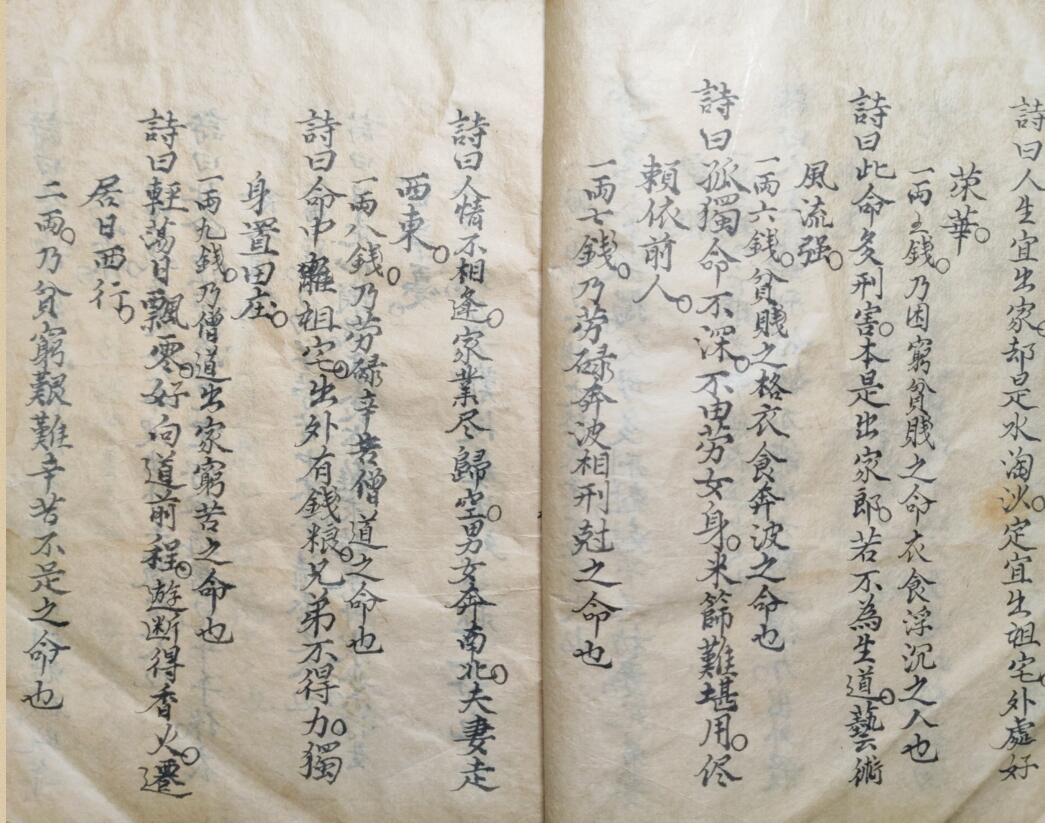 詩曰人生宜出家。却是水淘沙。定宜出祖宅。外處好
荣華。
一両五錢。乃困窮貧賎之命衣食浮沉之人也
詩曰此命多刑害。本是出家郎。若不為生道。藝術
風流强。
一両六錢。貧賎之格衣食奔波之命也
詩曰孤獨命不深。不由劳女身。米篩難堪用。
頼依前人。
一両七錢。乃劳碌奔波相刑尅之命也
詩曰人情不相逢。家業尽歸空。男女奔南北。夫妻走
西東。
一両八錢。乃劳碌辛苦僧道之命也
詩曰命中離祖宅。出外有錢粮。兄弟不得力。獨
身置田庄。
一両九錢。乃僧道出家窮苦之命也
詩曰輕蕩日飄零。好向道前程。遊断得香火。遷
居日西行。
二両。乃貧窮艱難辛苦不足之命也